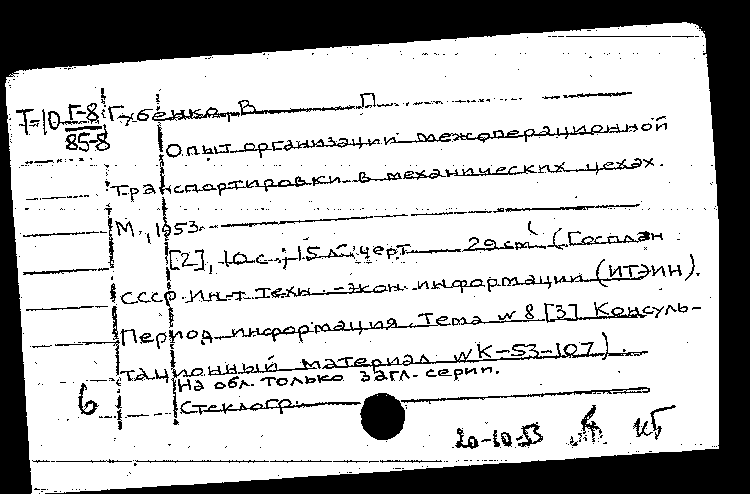 Т-10 Г-8 Губенко, В. П.
85-8
Опыт организации межоперационной
транспортировки в механических цехах.
М., 1953.
[2], 10 с.; 15 л. черт. 29 см (Госплан
СССР. Ин-т техн.-экон. информации (ИТЭИН).
Период. информация. Тема № 8 [3] Консуль-
тационный материал № К-53-107).
На обл. только загл. серии.
6 Стеклогр.
20-10-53 КБ